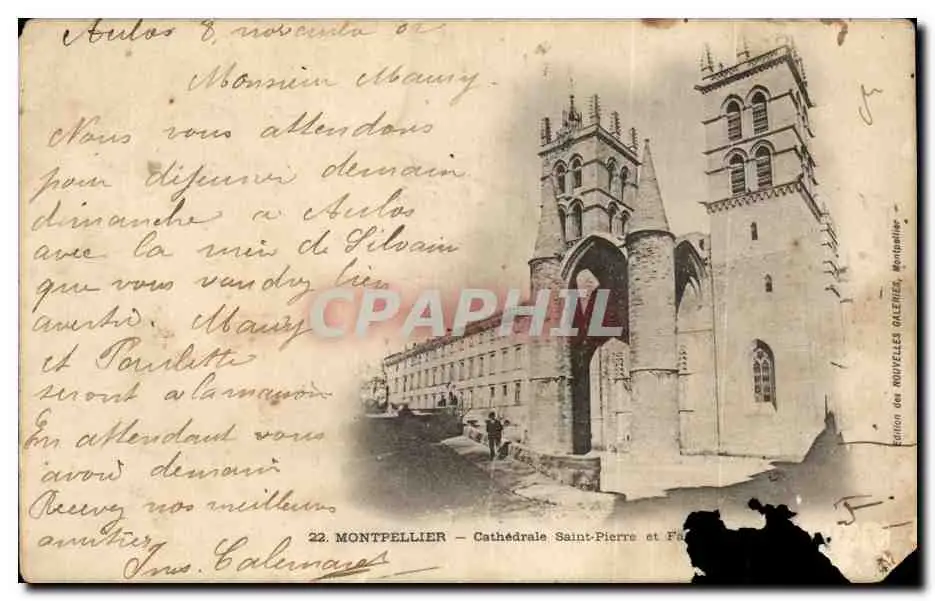 Aulas 8, novembre 02
Monsieur Maury
Nous vous attendons
pour déjeuner demain
dimanche a Aulas
avec la mère de Silvain
que vous voudrez bien
avertir. Maury
et Paulette
seront a la maison
En attendant vous
avoir demain
Recevez nos meilleurs
amitiés
CPAPHIL
22. MONTPELLIER — Cathédrale Saint-Pierre et Fa
Edition des NOUVELLES GALERIES, Montpellier